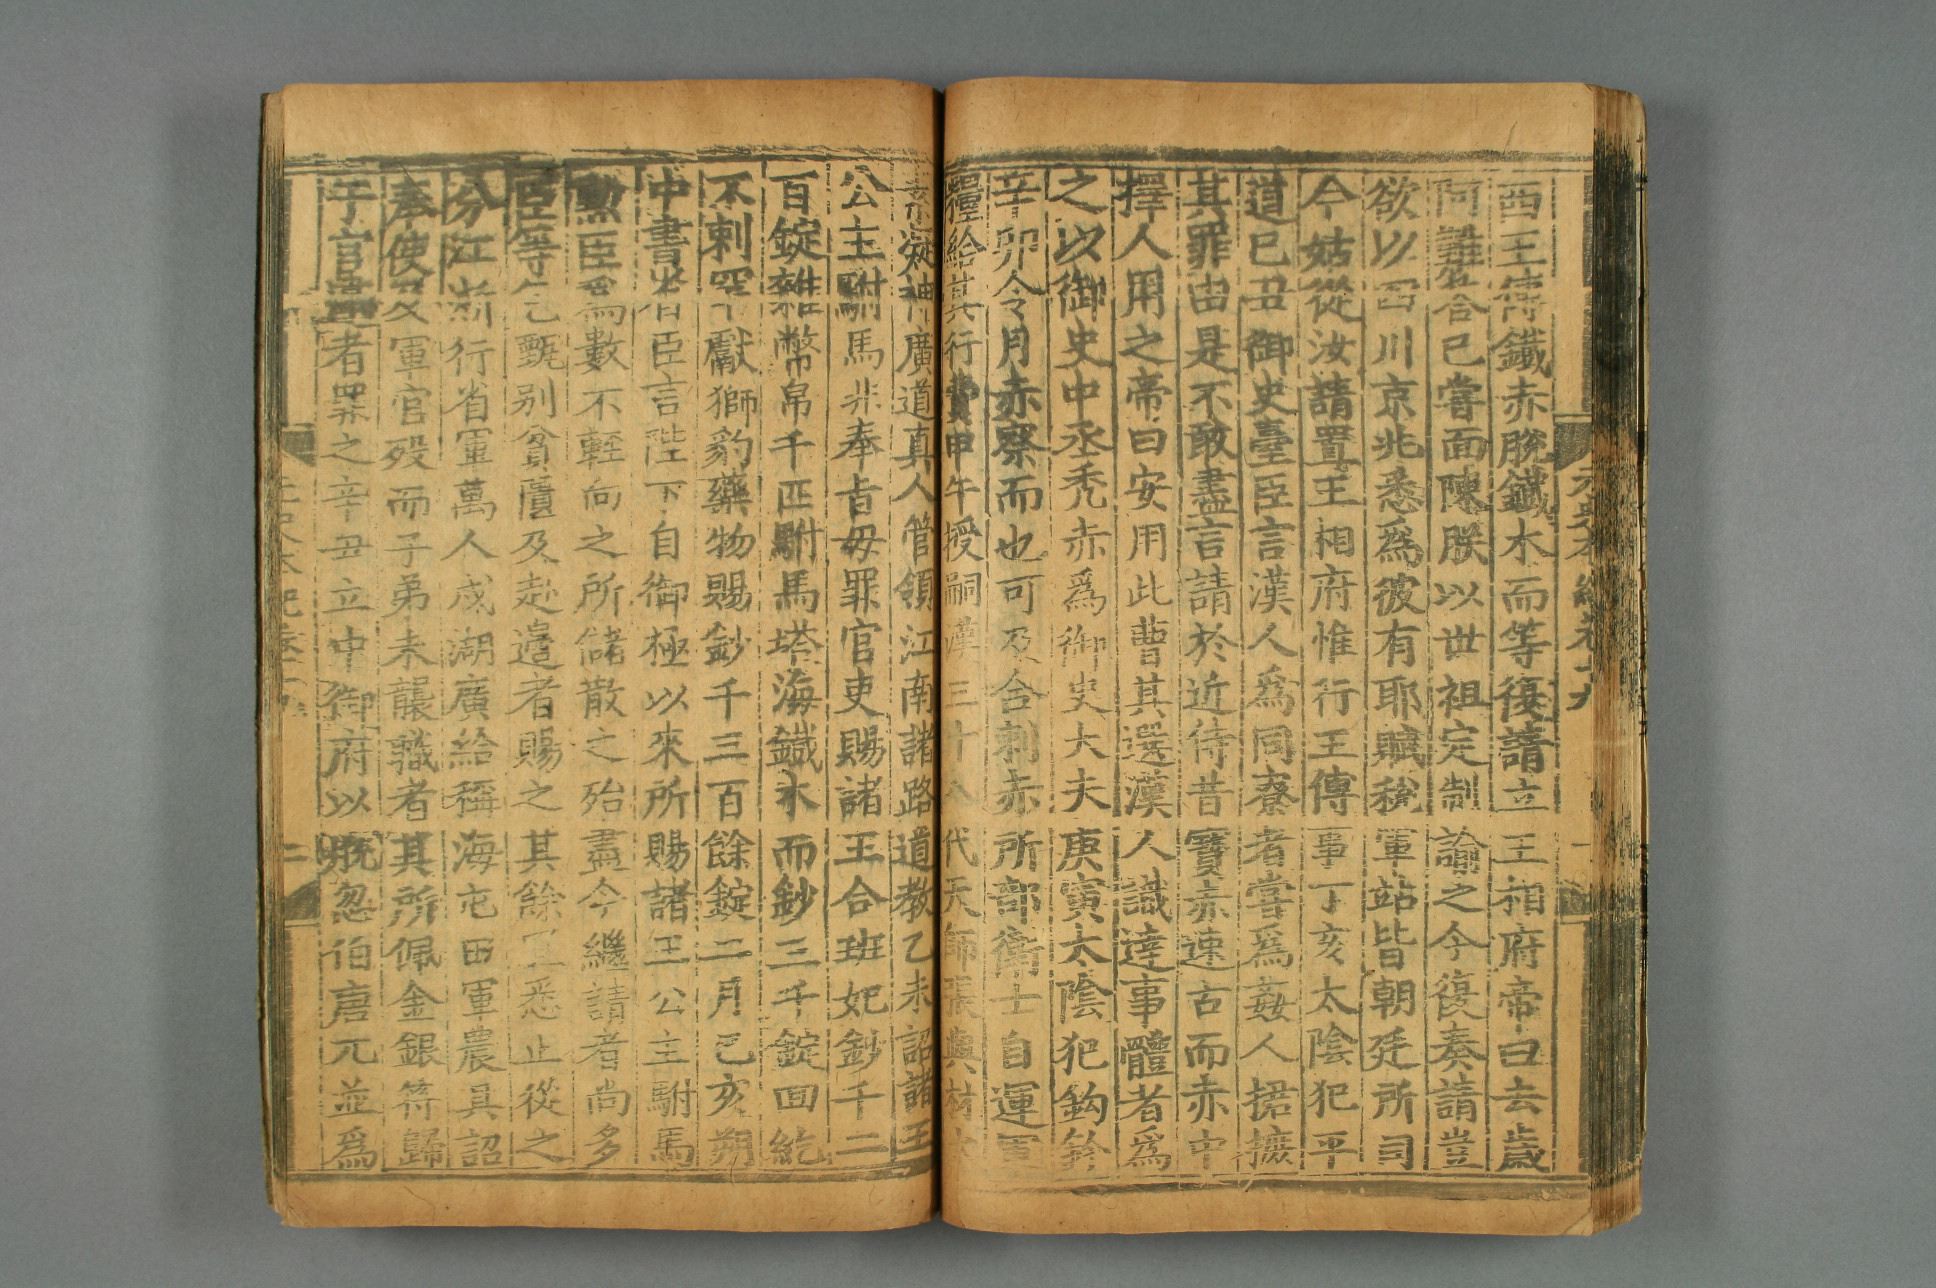 西王傅鐵赤脫鐵木而等復請立王相府帝曰去歲
阿難荅已嘗面陳朕以世祖定制諭之今復奏請豈
欲以四川京兆悉爲彼有耶賦稅軍站皆朝廷所司
今姑從汝請置王相府惟行王傅事丁亥太陰犯平
道己丑御史臺臣言漢人爲同寮者嘗爲姦人捃摭
其罪由是不敢盡言請於近侍昔寶赤速古而赤中
擇人用之帝曰安用此曹其選漢人識達事體者爲
之以御史中丞禿赤爲御史大夫庚寅太陰犯鈎鈐
辛卯令月赤察而也可及合剌赤所部衛士自運軍
糧給其行費甲午授嗣漢三十八代天師張與材太
素凝神廣道真人管領江南諸路道教乙未詔諸王
公主駙馬非奉旨毋罪官吏賜諸王合班妃鈔千二
百錠雜幣帛千匹駙馬塔海鐵木而鈔三千錠回紇
不剌罕獻獅豹藥物賜鈔千三百餘錠二月己亥朔
中書省臣言陛下自御極以來所賜諸王公主駙馬
勲臣爲數不輕向之所儲散之殆盡今繼請者尚多
臣等乞甄别貧匱及赴邊者賜之其餘宜悉止從之
分江浙行省軍萬人戍湖廣給稱海屯田軍農具詔
奉使及軍官歿而子弟未襲職者其所佩金銀符歸
于官違者罪之辛丑立中御府以脱忽伯唐兀並爲
元史本紀卷十九
二